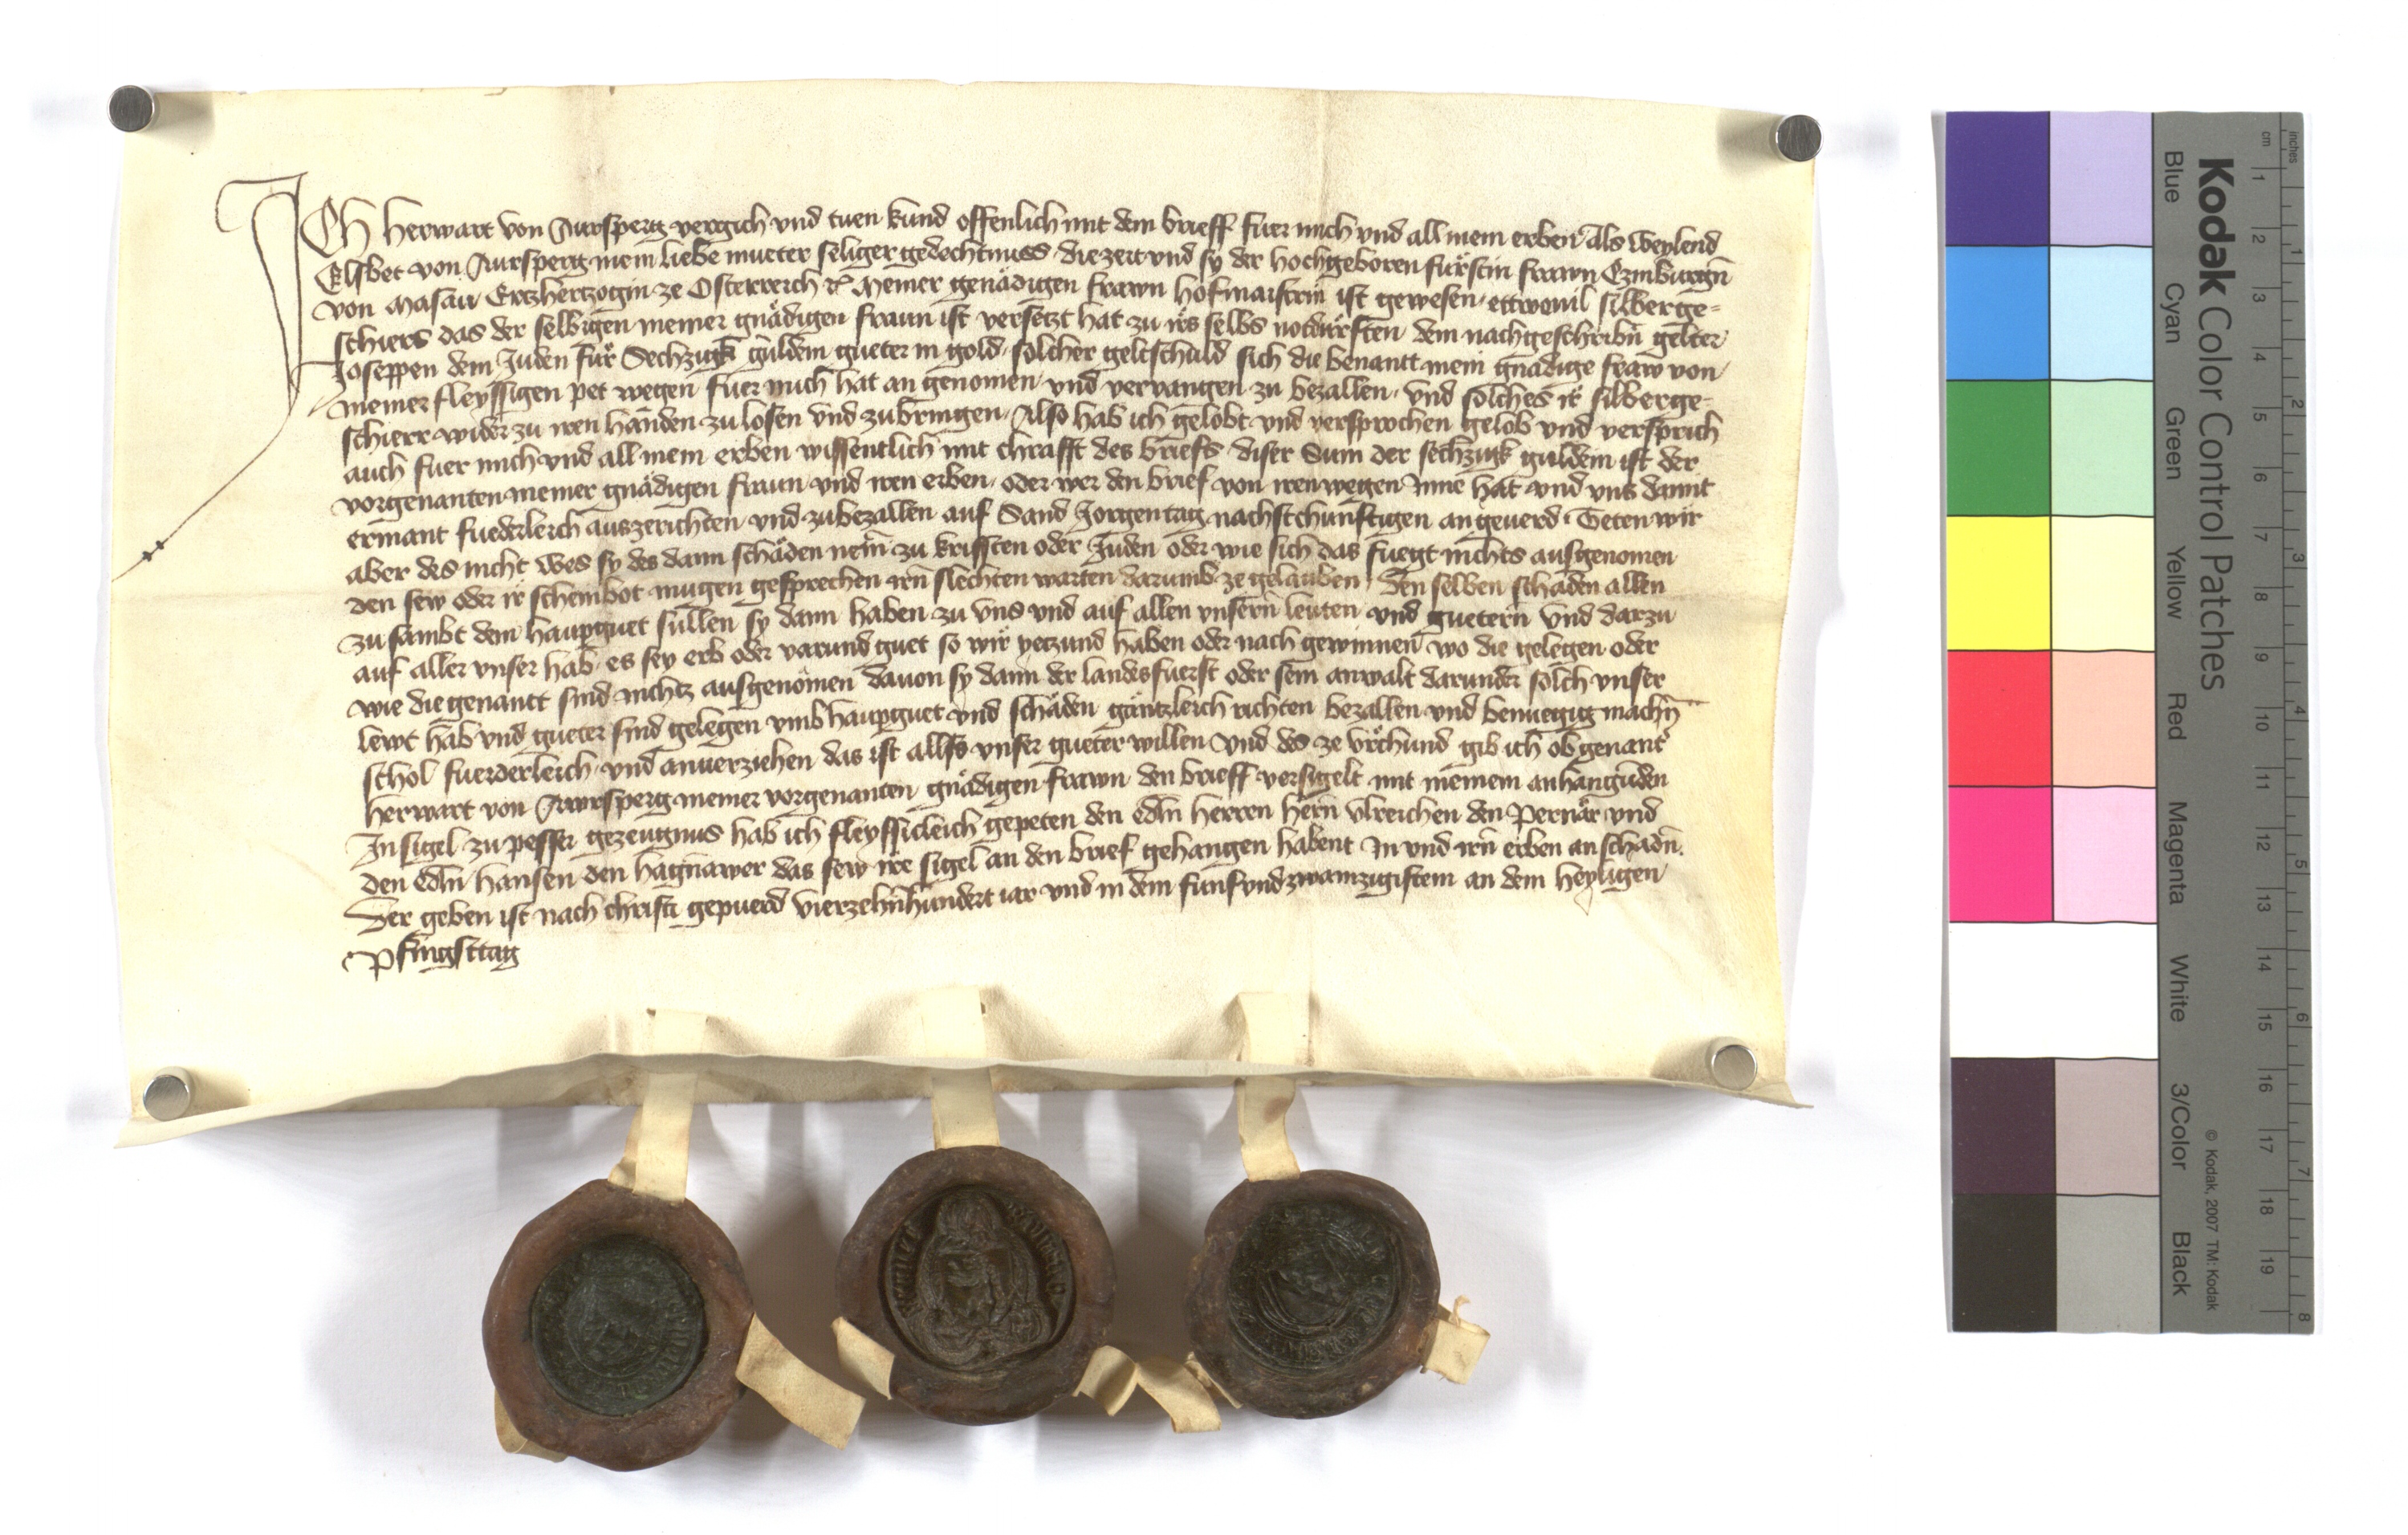 ICh herwart von Awrsperg vergich vnd tuen kund offenlich mit dem brieff fuer mich vnd all mein erben als weylend
Elsbet von Awrsperg mein liebe mueter seliger gedechtnuss die zeit vnd sy der hochgeboren furstin frawn Czimburgn
von Masau Ertzhertzogin ze Osterreich meiner genädigen frawn hofmaistrin ist gewesen ettwevil silberge-
schiers das der selbigen meiner gnädigen fraun ist versetzt hat zu irs selbs notdürften dem nachgeschribn gelter
Joseppen dem Juden für Sechzigk guldein gueter in gold solcher geltschuld sich die benantt mein gnädige fraw von
meiner fleyssigen pet wegen fuer mich hat an genomen vnd vervangen zu bezallen vnd solches ir silberge-
schierr wider zu iren handen zu losen vnd zubringen Also hab ich gelobt vnd versprochen gelob vnd versprich
auch fuer mich vnd all mein erben wissentlich mit chrafft des briefs diser Sum der sechzigk guldein ist der
vorgenanten meiner gnädigen fraun vnd iren erben oder wer den brief von iren wegen Inne hat vnd vns damit
ermant fuederleich auszerichten vnd zubezallen auf Sand Jorgen tag nachstchunftigen an geuerd Teten wir
aber des nicht wes sy des dann schäden nem zu kristten oder Juden oder wie sich das fuegt nichts ausgenomen
den sew oder ir scheinbot mugen gesprechen irn slechten warten darumb ze gelauben Den selben schaden allen
zu sambt dem haupguet sullen sy dann haben zu vns vnd auf allen vnsern leuten vnd guetern vnd darzu
auf aller vnser hab es sey erb oder varund guet so wir yetzund haben oder nach gewinnen wo die gelegen oder
wie die genantt sind nichtz ausgenomen dauon sy dann der landesfuerst oder sein anwalt darunder solch vnser
lewt hab vnd gueter sind gelegen vmb haupguet vnd schäden gäntzleich richten bezallen vnd benuegig machn
schol fuerderleich vnd anuerziehen das ist allss vnser gueter willen vnd des ze vrchund gib ich obgenant
herwart von Awrsperg meiner vorgenanten gnädigen frawn den brieff versigelt mit meinem anhangunden
Insigel zu pesser gezeugnus hab ich fleyssicleich gepeten den edln herren hern vlreichen den Pernär vnd
den edln hansen den hagnawer das sew ire sigel an den brief gehangen habent In vnd irn erben an schadn.
Der geben ist nach christi gepuerd vierzehnhundert iar vnd in dem funfvndzwainzigistem an dem heyligen
Pfingsttag
Kodak Color Control Patches
Blue Cyan Green Yellow Red Magenta White 3/Color Black
© Kodak, 2007 TM: Kodak
inches 1 2 3 4 5 6 7 8
cm 1 2 3 4 5 6 7 8 9 10 11 12 13 14 15 16 17 18 19